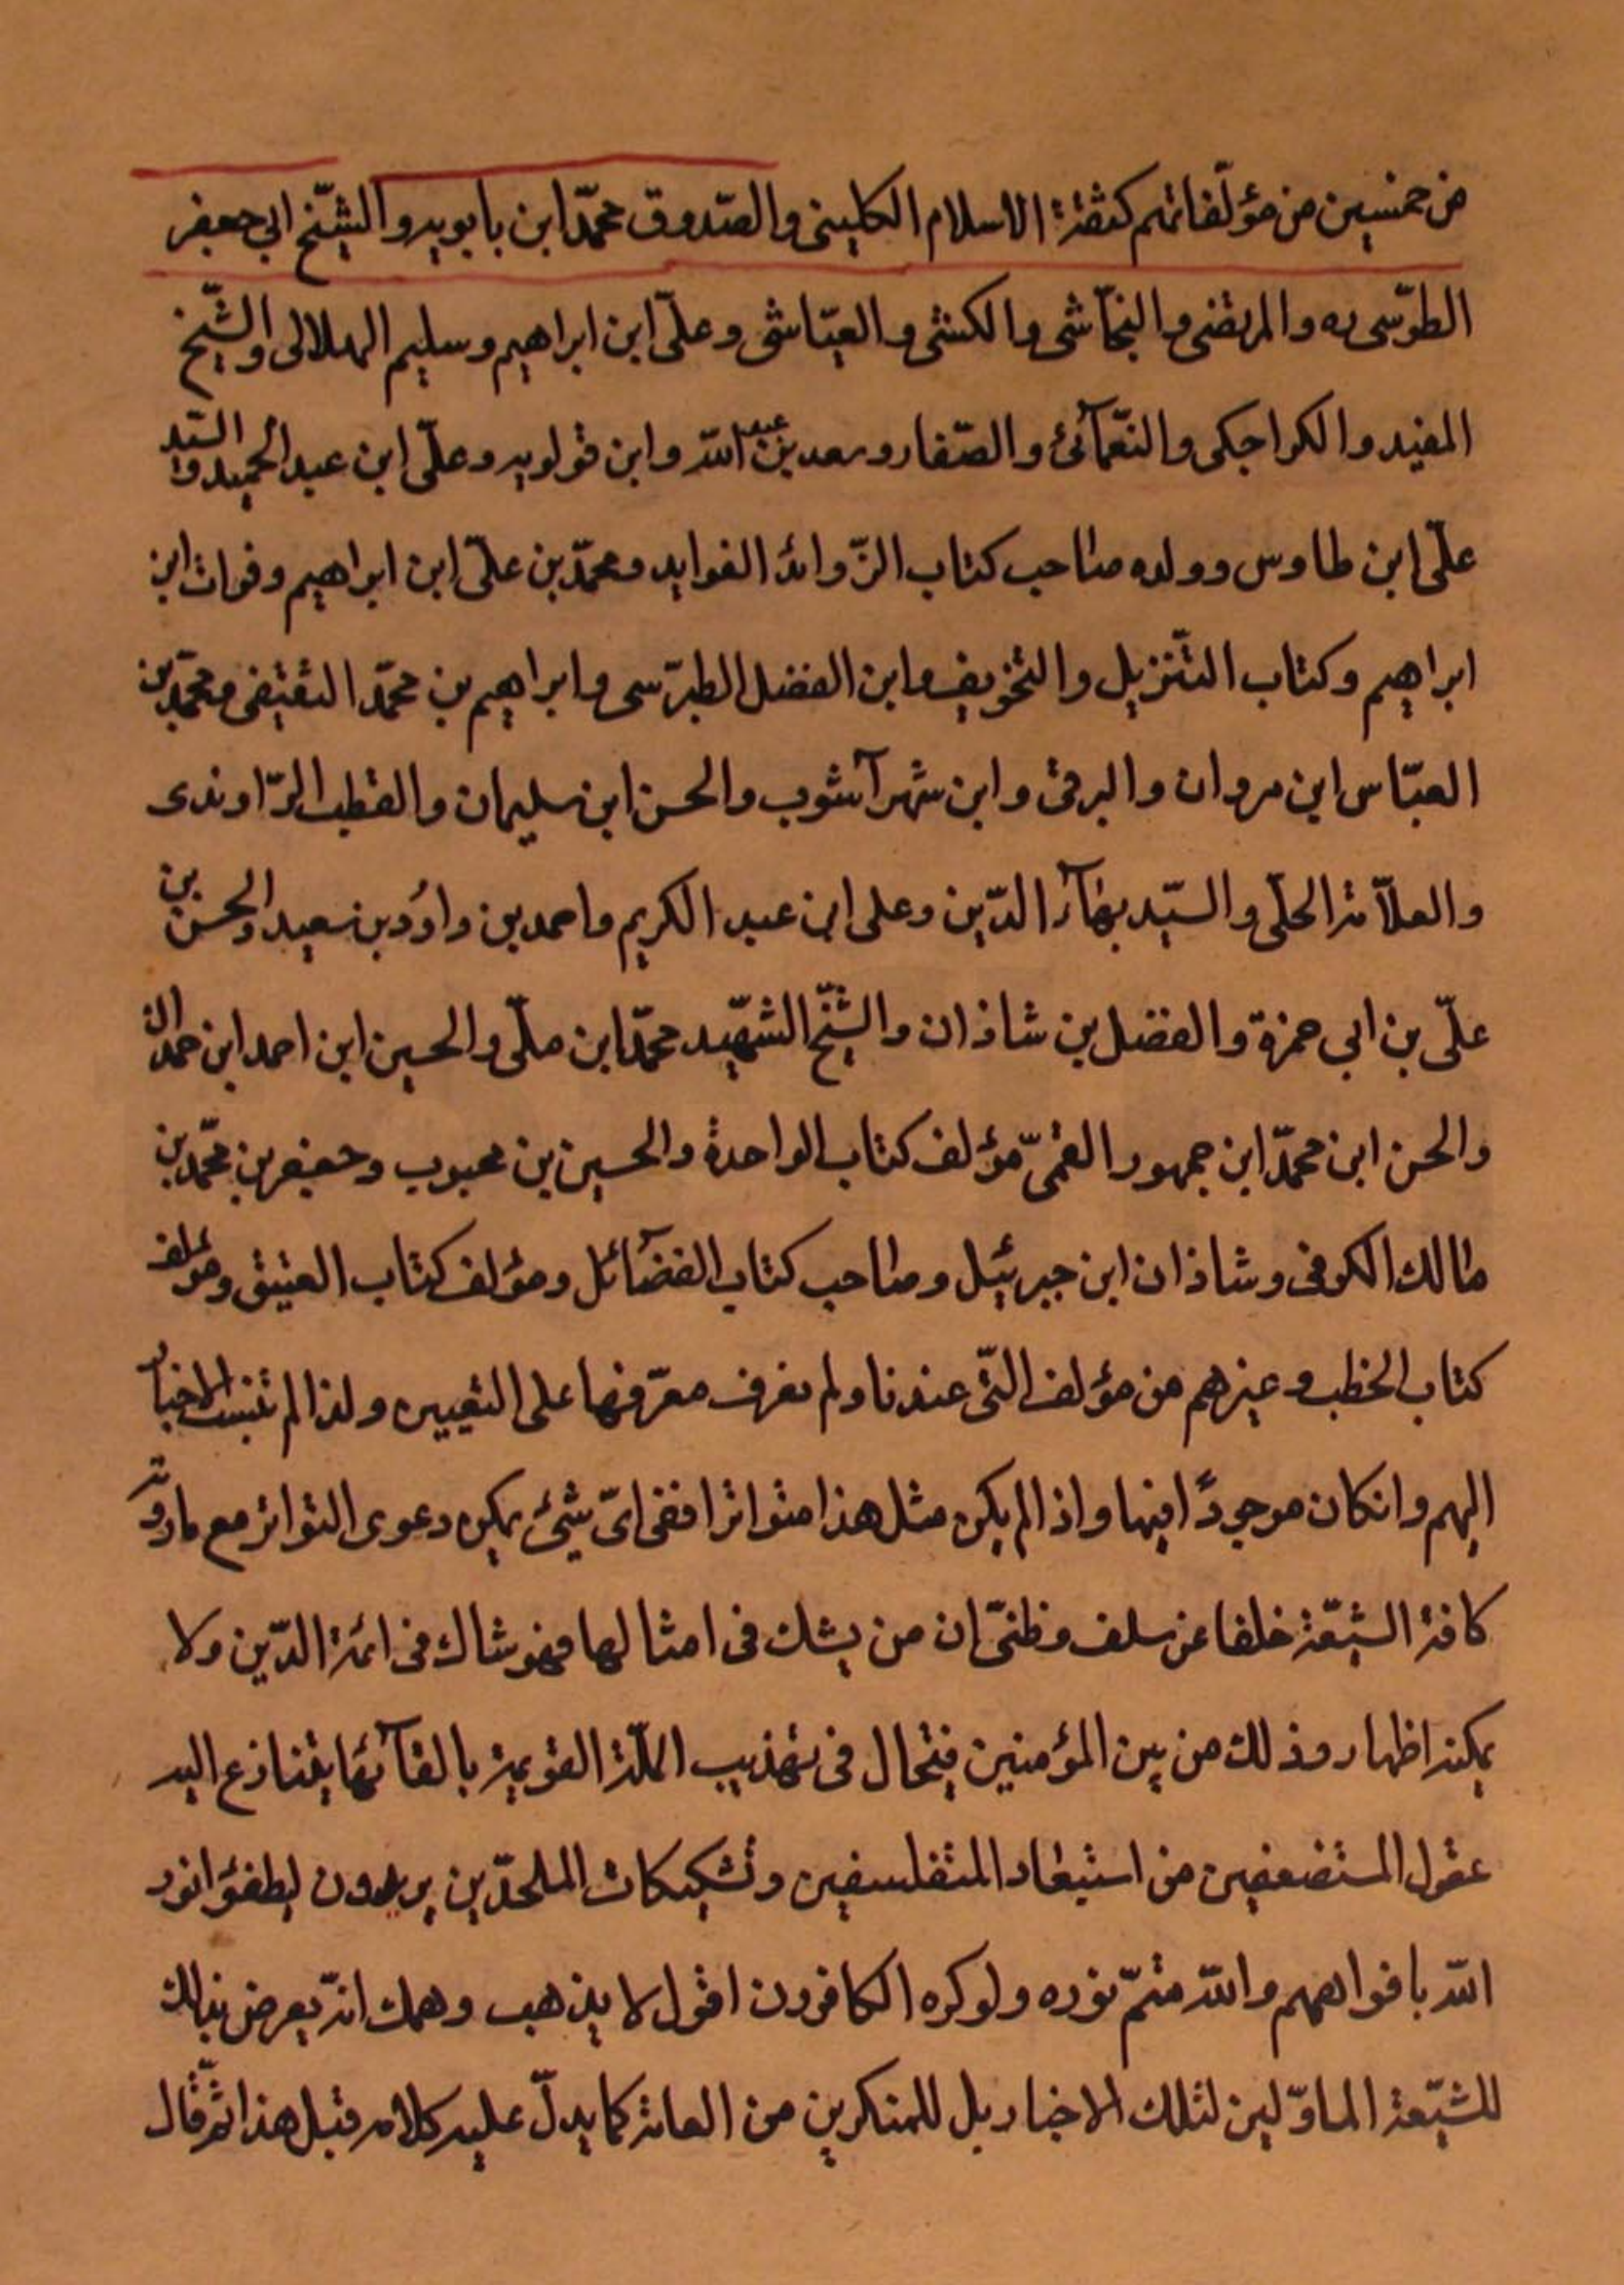 من خمسين من مؤلّفاتهم كثقة الاسلام الكلينى والصّدوق محمّد ابن بابويه والشّيخ ابي جعفر
الطوّسى ره والمرتضى والنجّاشى والكشى والعيّاشى وعلىّ ابن ابراهيم وسليم الهلالى والشّيخ
المفيد والكراجكى والنّعمآنئ والصّفار وسعد بن عبد اللّه وابن قولويه وعلىّ ابن عبد الحميد والسّيد
علىّ ابن طاوس وولده صاحب كتاب الزّوائد الفوايد ومحمّد بن علىّ ابن ابراهيم وفرات ابن
ابراهيم وكتاب التّنزيل والتخويف وابن الفضل الطبرّسى وابراهيم بن محمّد الثقيفى ومحمّد بن
العبّاس ابن مروان والبرقى وابن شهرآشوب والحسن ابن سليمان والقطب الرّاوندى
والعلاّمة الحلّى والسيّد بهآء الدّين وعلى ابن عبد الكريم واحمد بن داود بن سعيد والحسن بن
علىّ بن ابى حمزة والفضل بن شاذان والشّيخ الشهّيد محمّد ابن ملّى والحسين ابن احمد ابن حمدان
والحسن ابن محمّد ابن جمهور القمىّ مؤلف كتاب الواحدة والحسين بن محبوب وجعفر بن محمّد بن
طالك الكوفى وشاذان ابن جبرئيل وصاحب كتاب الفضآئل ومؤلف كتاب العتيق ومؤلف
كتاب الخطب وغيرهم من مؤلف التّى عندنا ولم نعرف معرّفها على التعيين ولذا لم تنسب الاخبار
اليهم وانكان موجودًا فيها واذا لم يكن مثل هذا متواترا ففى اىّ شيئ يمكن دعوى التواتر مع ماروته
كافة الشيّعة خلفا عن سلف وظنىّ ان من يشك فى امثالها فهو شاك فى ائمة الدّين ولا
يمكنه اظهار وذلك من بين المؤمنين فيتحال فى تهذيب الملّة القويمة بالقآئها يتنازع اليه
عقول المستضعفين من استبعاد المتفلسفين وتشكيكات الملحدّين يريدون ليطفؤا نور
اللّه بافواههم واللّه متمّ نوره ولوكره الكافرون اقول لا يذهب وهمك انّه يعرض بذلك
للشيّعة الماوّلين لتلك الاخبار بل للمنكرين من العامة كما يدلّ عليه كلامه قبل هذا ثمّ قال